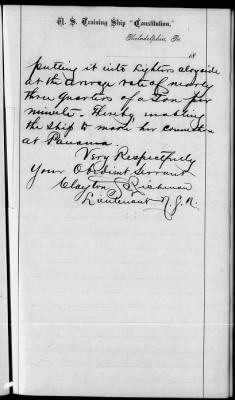 U. S. Training Ship "Constitution,"
Philadelphia, Pa
18
putting it into lighters alongside
at the average rate of nearly
three quarters of a ton per
minute - thereby enabling
the ship to make her connection
at Panama.
Very Respectfully
Your Obedient Servant
Clayton S. Richman
Lieutenant